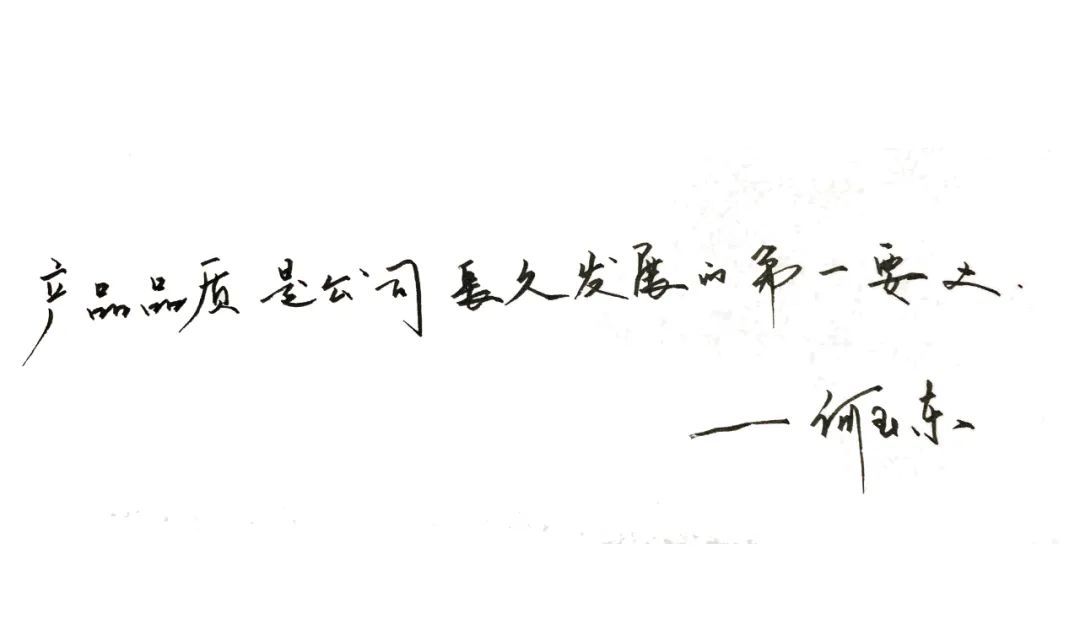 产品品质是公司長久发展的第一要义.
——何玉东